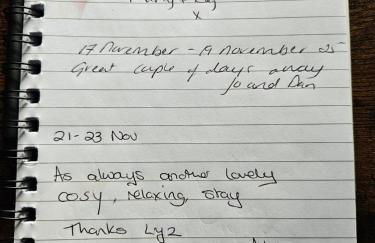 x
17 November - 19 november 25
Great cuple of days away
Jo and Dan
21-23 Nov
As always another lovely
cosy, relaxing, stay
Thanks Lyz